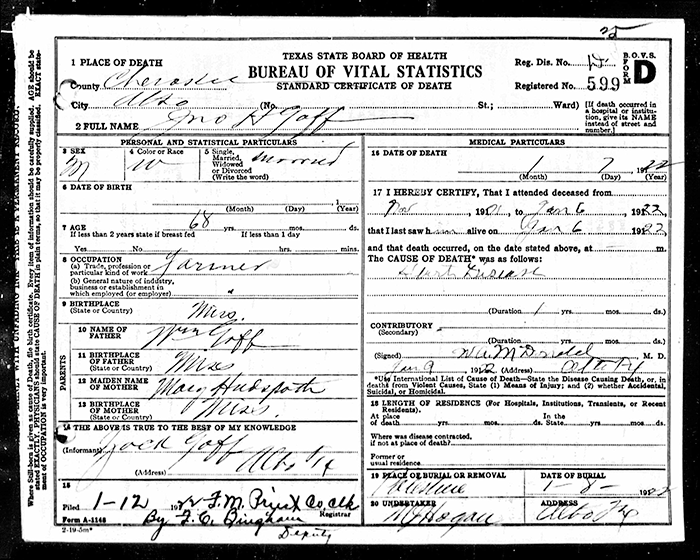 TEXAS STATE BOARD OF HEALTH
BUREAU OF VITAL STATISTICS
STANDARD CERTIFICATE OF DEATH
Reg. Dis. No.
Registered No. 599
B.O.V.S.
FORM D
1 PLACE OF DEATH
County Cherokee
City Alto (No. St.; Ward)
[If death occurred in a hospital or institution, give its NAME instead of street and number.]
2 FULL NAME Jno H Goff
PERSONAL AND STATISTICAL PARTICULARS
3 SEX M
4 Color or Race W
5 Single, Married, Widowed or Divorced (Write the word) married
6 DATE OF BIRTH
(Month) (Day) (Year)
7 AGE 68 yrs. mos. ds.
If less than 2 years state if breast fed If less than 1 day
Yes No hrs. mins.
8 OCCUPATION
(a) Trade, profession or particular kind of work Farmer
(b) General nature of industry, business or establishment in which employed (or employer)
9 BIRTHPLACE
(State or Country) Miss.
PARENTS
10 NAME OF FATHER Wm Goff
11 BIRTHPLACE OF FATHER
(State or Country) Miss
12 MAIDEN NAME OF MOTHER Mary
13 BIRTHPLACE OF MOTHER
(State or Country) Miss.
14 THE ABOVE IS TRUE TO THE BEST OF MY KNOWLEDGE
(Informant) Zack Goff
(Address) Alto Tx
15
Filed 1-12 1922 F. M. Priest Co, Clk
Registrar
By F. C. Bingham
Deputy
Form A-1145
2-19-5m*
MEDICAL PARTICULARS
16 DATE OF DEATH
1 7 1922
(Month) (Day) (Year)
17 I HEREBY CERTIFY, That I attended deceased from
Nov 191 to Jan 6 1922,
that I last saw him alive on Jan 6 1922,
and that death occurred, on the date stated above, at m.
The CAUSE OF DEATH* was as follows:
Heart Disease
(Duration) 1 yrs. mos. ds.
CONTRIBUTORY
(Secondary)
(Duration) yrs. mos. ds.
(Signed) M. D.
Jan 9 1922 (Address) Alto Tx
*Use International List of Cause of Death—State the Disease Causing Death, or, in deaths from Violent Causes, State (1) Means of Injury; and (2) whether Accidental, Suicidal, or Homicidal.
18 LENGTH OF RESIDENCE (For Hospitals, Institutions, Transients, or Recent Residents).
At place of death yrs. mos. ds. In the State yrs. mos. ds.
Where was disease contracted, if not at place of death?
Former or usual residence
19 PLACE OF BURIAL OR REMOVAL DATE OF BURIAL
Palestine 1-8-1922
20 UNDERTAKER ADDRESS
Hogan Alto Tx